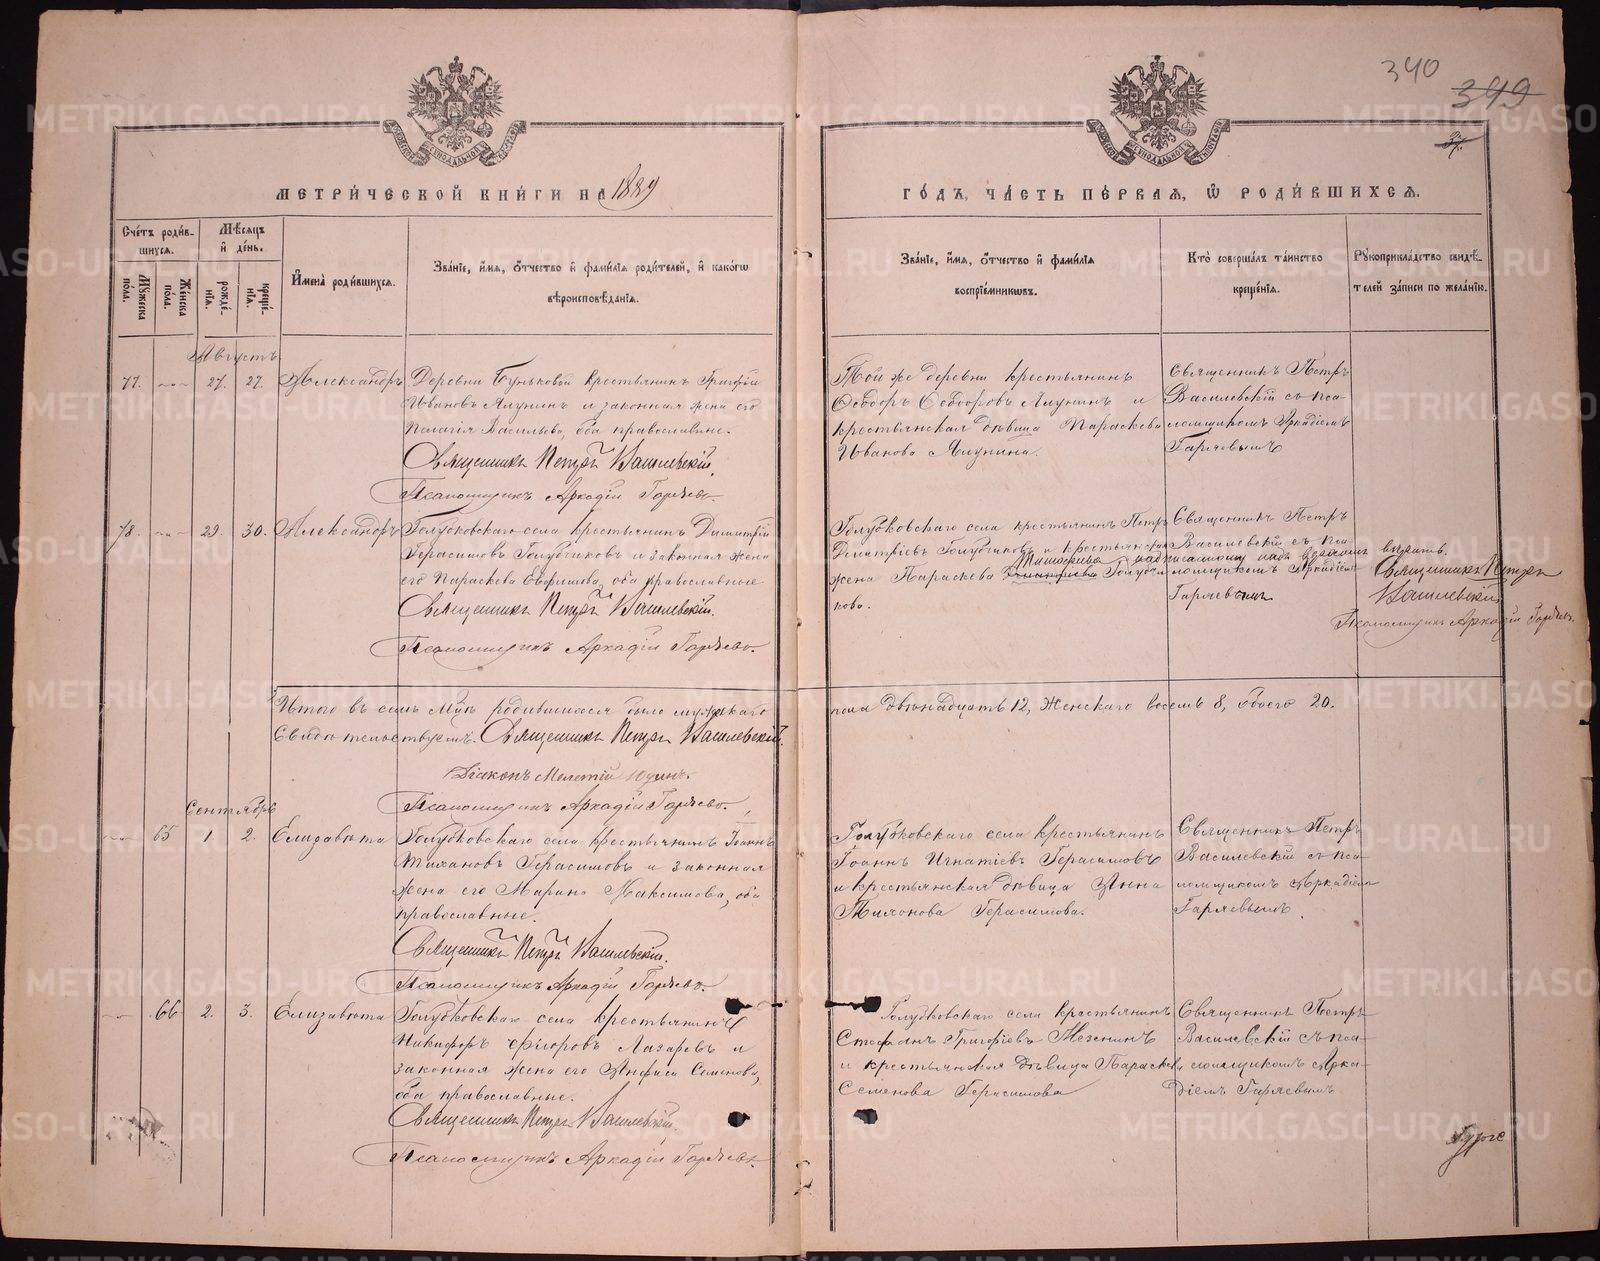 340
349
37.
МЕТРИ́ЧЕСКОЙ КНИ́ГИ НА 1889
ГО́ДЪ, ЧА́СТЬ ПЕ́РВАЯ, Ѡ РОДИ́ВШИХСЯ.
Сче́тъ роди́в-
шихся.
Мѣ́сяцъ
и де́нь.
Му́жеска
по́ла.
Же́нска
по́ла.
рожде́-
нія.
креще́-
нія.
И҆мена̀ роди́вшихся.
Зва́ніе, и҆́мя, ѻ҆́тчество и҆ фами́лія роди́телей, и҆ како́гѡ
вѣроисповѣ́данія.
Зва́ніе, и҆́мя, ѻ҆́тчество и҆ фами́лія
воспрїе́мниковъ.
Кто̀ соверша́лъ та́инство
креще́нія.
Рꙋкоприкла́дство свидѣ́-
телей за́писи по жела́нію.
Августъ
77. 27. 27. Александръ
Деревни Буньковой крестьянинъ Григорій
Ивановъ Ялунинъ и законная жена его
Пелагія Васильева, оба православные.
Священникъ Петръ Василевскій.
Псаломщикъ Аркадій Гаряевъ.
Той же деревни крестьянинъ
Ѳеодоръ Ѳеодоровъ Ялунинъ и
крестьянская дѣвица Параскева
Иванова Ялунина.
Священникъ Петръ
Василевскій съ пса-
ломщикомъ Аркадіемъ
Гаряевымъ
78. 29. 30. Александръ
Голубковскаго села крестьянинъ Димитрій
Герасимовъ Голубчиковъ и законная жена
его Параскева Евфимова, оба православные
Священникъ Петръ Василевскій.
Псаломщикъ Аркадій Гаряевъ.
Голубковскаго села крестьянинъ Петръ
Димитріевъ Голубчиковъ и крестьянская
Тимофеева надписанному надъ
жена Параскева Голубчи-
кова.
Священникъ Петръ
Василевскій съ пса-
ломщикомъ Аркадіем
Гаряевымъ
вѣрить.
Священникъ Петръ
Василевскій
Псаломщикъ Аркадій Гаряевъ.
Итого въ семъ м-цѣ родившихся было мужескаго
пола двѣнадцать 12, женскаго восемь 8, обоего 20.
Свидѣтельствуемъ. Священникъ Петръ Василевскій.
Діаконъ Мелетій Юдинъ.
Псаломщикъ Аркадій Гаряевъ.
Сентябрь
65 1. 2. Елизавета
Голубковскаго села крестьянинъ Іоаннъ
Тихановъ Герасимовъ и законная
жена его Марина Максимова, оба
православные.
Священникъ Петръ Василевскій.
Псаломщикъ Аркадій Гаряевъ.
Голубковскаго села крестьянинъ
Іоаннъ Игнатіевъ Герасимовъ
и крестьянская дѣвица Анна
Тихонова Герасимова.
Священникъ Петръ
Василевскій съ пса-
ломщикомъ Аркадіем
Гаряевымъ.
66 2. 3. Елизавета
Голубковскаго села крестьянинъ
Никифоръ Егоровъ Лазаревъ и
законная жена его Анфиса Семенова,
оба православные.
Священникъ Петръ Василевскій.
Псаломщикъ Аркадій Гаряевъ.
Голубковскаго села крестьянинъ
Стефанъ Григоріевъ Мезенинъ
и крестьянская дѣвица Параскева
Семенова Герасимова
Священникъ Петръ
Василевскій съ пса-
ломщикомъ Арка-
діемъ Гаряевымъ
METRIKI.GASO-URAL.RU